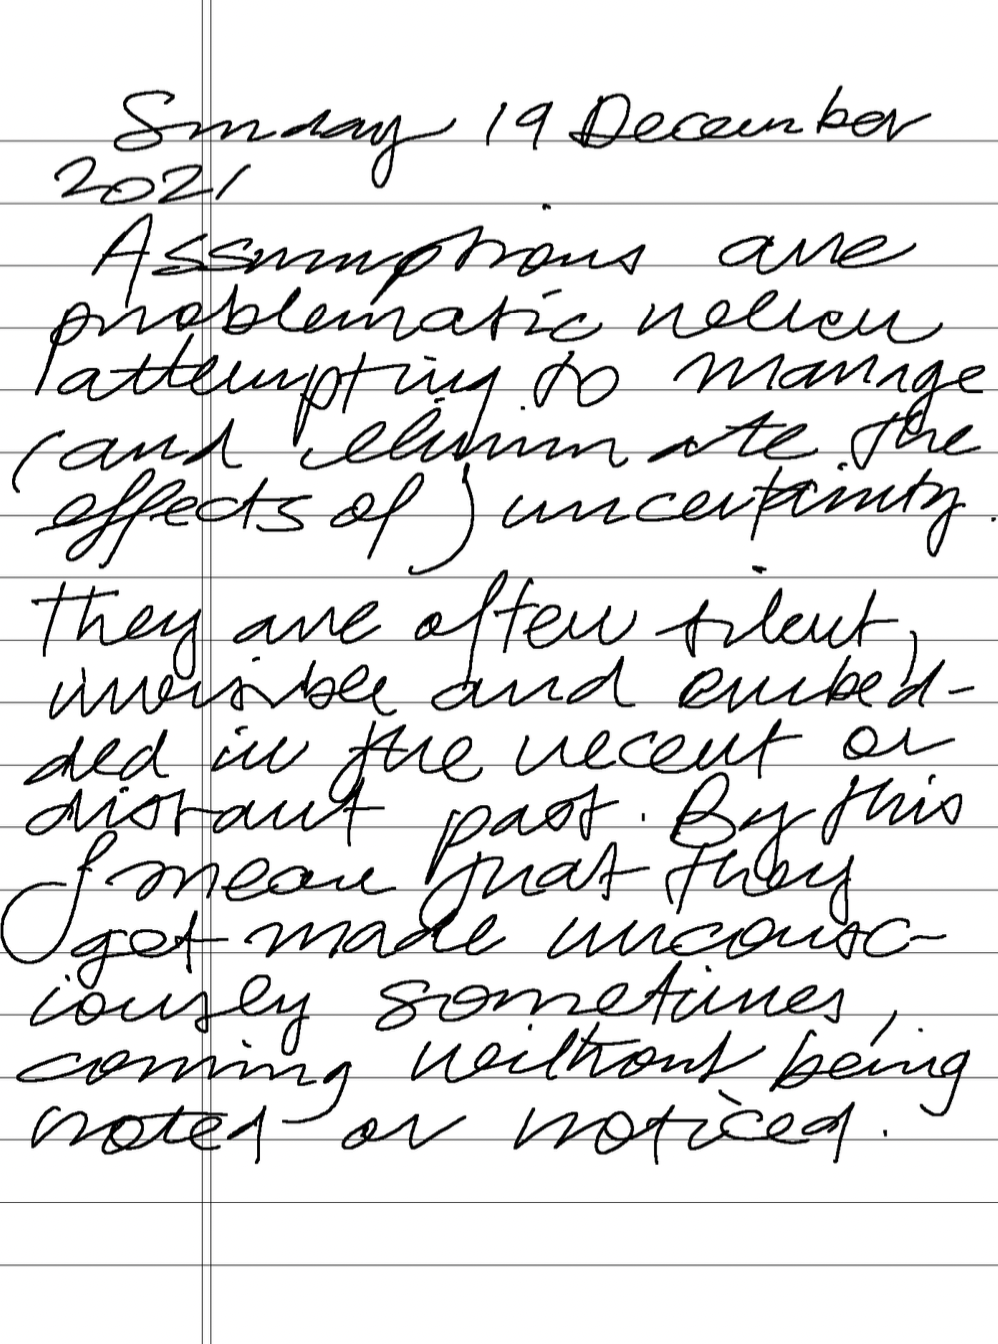 Sunday 19 December
2021
Assumptions are
problematic when
attempting to manage
(and eliminate the
effects of) uncertainty.
They are often silent,
invisible and embed-
ded in the recent or
distant past. By this
I mean that they
get made unconsc-
iously sometimes,
coming without being
noted or noticed.